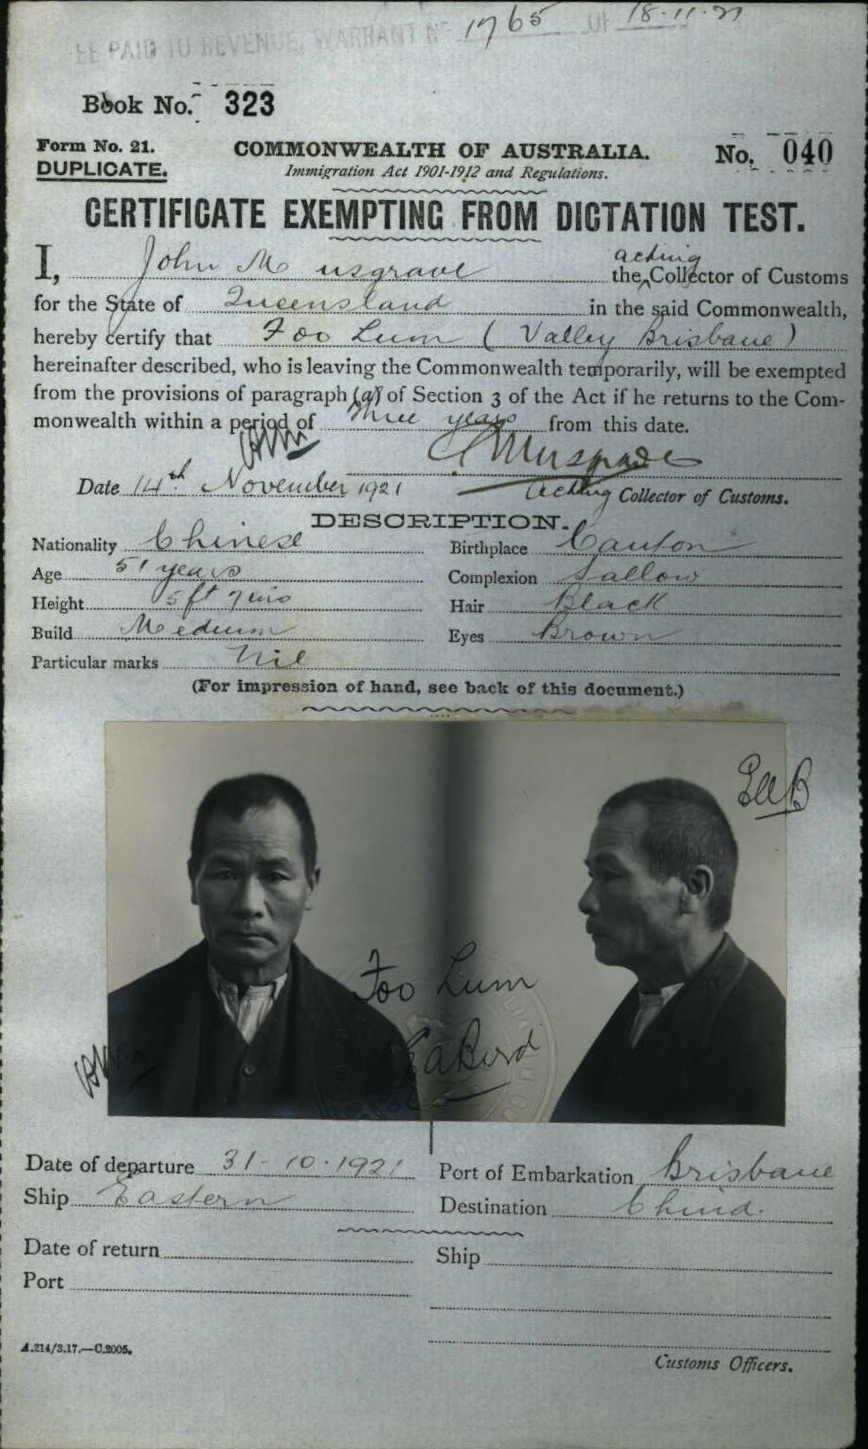 BE PAID TO REVENUE, WARRANT No 1765 OF 18.11.21
Book No. 323
Form No. 21. COMMONWEALTH OF AUSTRALIA. No. 040
DUPLICATE. Immigration Act 1901-1912 and Regulations.
CERTIFICATE EXEMPTING FROM DICTATION TEST.
I, John Musgrave the acting Collector of Customs
for the State of Queensland in the said Commonwealth,
hereby certify that Foo Lum (Valley Brisbane)
hereinafter described, who is leaving the Commonwealth temporarily, will be exempted
from the provisions of paragraph (a) of Section 3 of the Act if he returns to the Com-
monwealth within a period of three years from this date.
Musgrave
Date 14th November 1921 acting Collector of Customs.
DESCRIPTION.
Nationality Chinese Birthplace Canton
Age 51 years Complexion Sallow
Height 5 ft 7 ins Hair Black
Build Medium Eyes Brown
Particular marks Nil
(For impression of hand, see back of this document.)
Foo Lum
Date of departure 31-10-1921 Port of Embarkation Brisbane
Ship Eastern Destination China.
Date of return Ship
Port
A.214/3.17.—C.2005.
Customs Officers.